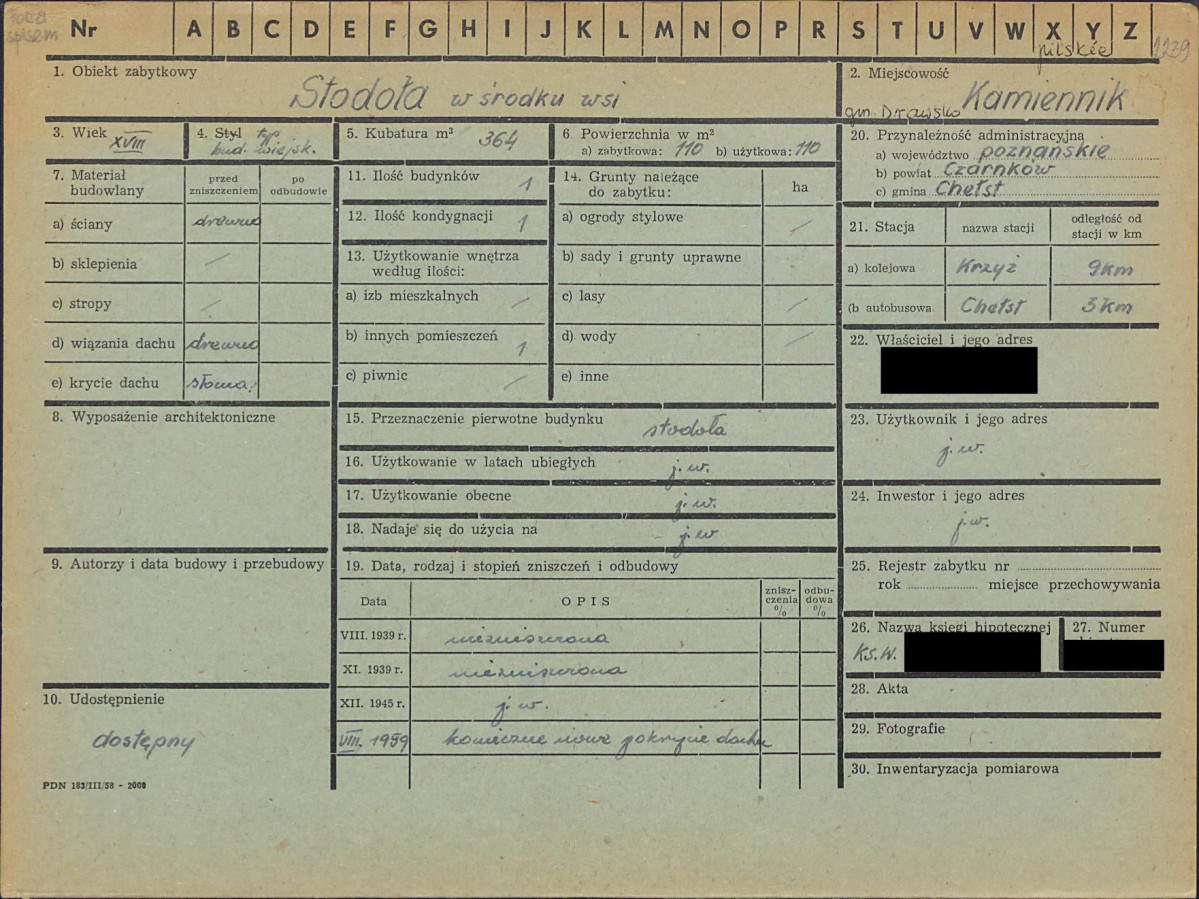 Poza
spisem
Nr A B C D E F G H I J K L M N O P R S T U V W X Y Z
pilskie
1. Obiekt zabytkowy
Stodoła w środku wsi
2. Miejscowość
gm. Drawsko Kamiennik
3. Wiek
XVIII
4. Styl typ
bud. wiejsk.
5. Kubatura m³ 364
6. Powierzchnia w m²
a) zabytkowa: 110 b) użytkowa: 110
20. Przynależność administracyjna
a) województwo poznańskie
b) powiat Czarnków
c) gmina Chełst
7. Materiał
budowlany
przed
zniszczeniem
po
odbudowie
a) ściany drewno
b) sklepienia /
c) stropy /
d) wiązania dachu drewno
e) krycie dachu słoma
11. Ilość budynków 1
12. Ilość kondygnacji 1
13. Użytkowanie wnętrza
według ilości:
a) izb mieszkalnych /
b) innych pomieszczeń 1
c) piwnic /
14. Grunty należące
do zabytku: ha
a) ogrody stylowe /
b) sady i grunty uprawne
c) lasy /
d) wody /
e) inne
21. Stacja nazwa stacji odległość od
stacji w km
a) kolejowa Krzyż 9km
(b autobusowa Chełst 3km
22. Właściciel i jego adres
8. Wyposażenie architektoniczne
15. Przeznaczenie pierwotne budynku stodoła
16. Użytkowanie w latach ubiegłych j.w.
17. Użytkowanie obecne j.w.
18. Nadaje się do użycia na - j.w
23. Użytkownik i jego adres
j.w.
24. Inwestor i jego adres
j.w.
9. Autorzy i data budowy i przebudowy
19. Data, rodzaj i stopień zniszczeń i odbudowy
Data OPIS znisz-
czenia
% odbu-
dowa
%
VIII. 1939 r. niezniszczona
XI. 1939 r. niezniszczona
XII. 1945 r. j.w.
VIII. 1959 konieczne nowe pokrycie dachu
25. Rejestr zabytku nr
rok miejsce przechowywania
26. Nazwa księgi hipotecznej
Ks.W.
27. Numer
28. Akta
29. Fotografie
30. Inwentaryzacja pomiarowa
10. Udostępnienie
dostępny
PDN 183/III/58 - 2000